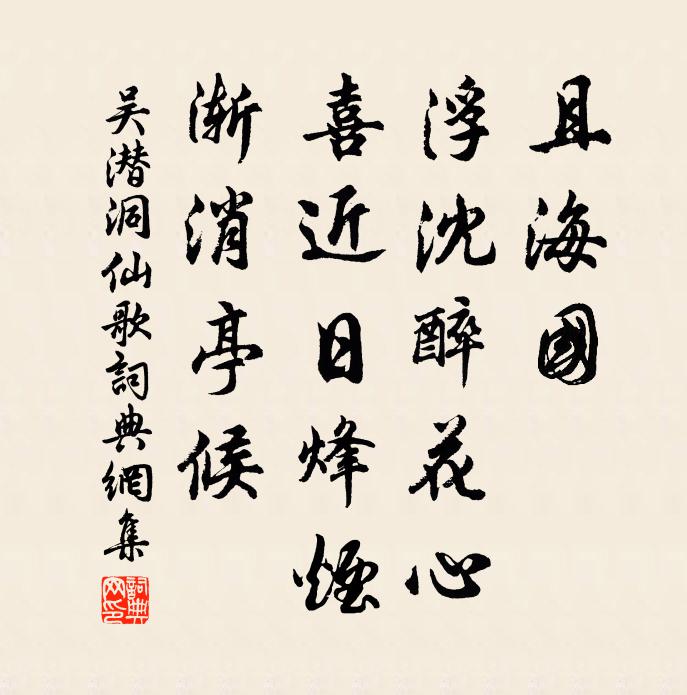 且海國
浮沈醉花心
喜近日烽煙
漸消亭候
吴潛洞仙歌詞典網集
詞典網印